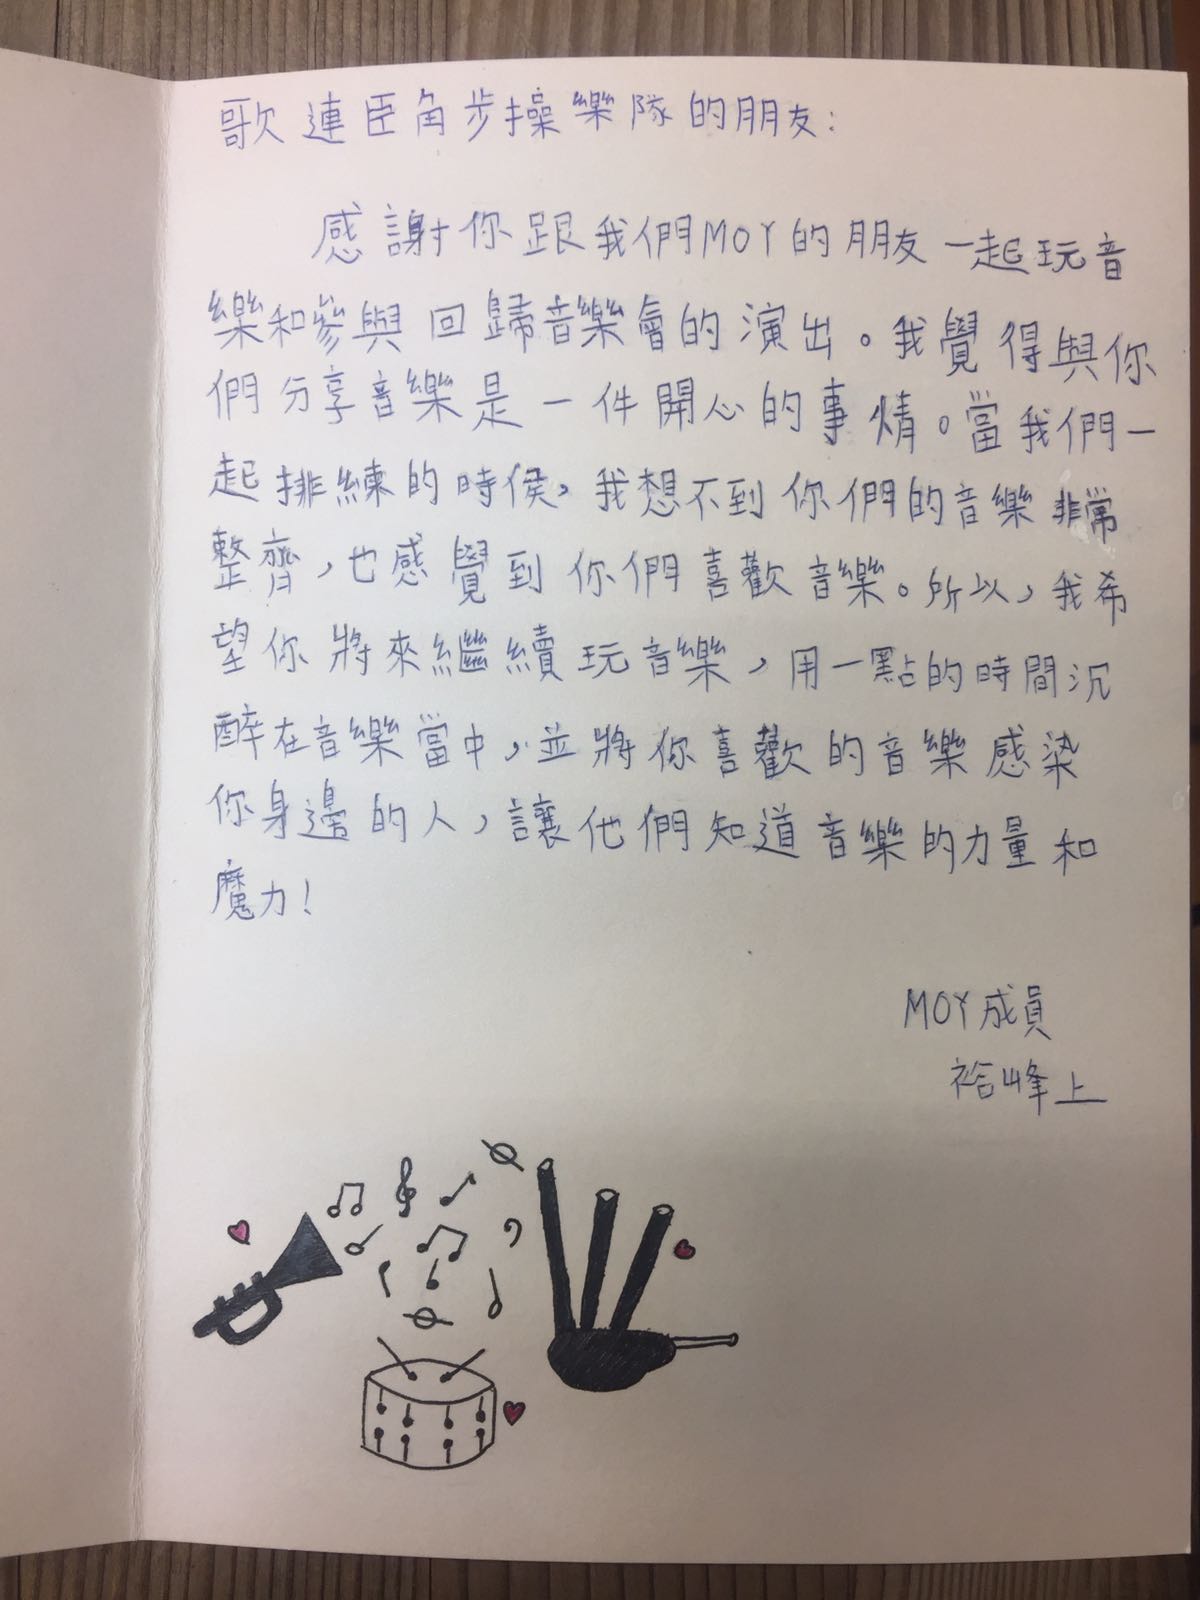 歌連臣角步操樂隊的朋友:
感謝你跟我們MOY的朋友一起玩音
樂和參與回歸音樂會的演出。我覺得與你
們分享音樂是一件開心的事情。當我們一
起排練的時侯,我想不到你們的音樂非常
整齊,也感覺到你們喜歡音樂。所以,我希
望你將來繼續玩音樂,用一點的時間沉
醉在音樂當中,並將你喜歡的音樂感染
你身邊的人,讓他們知道音樂的力量和
魔力!
MOY成員
峰上